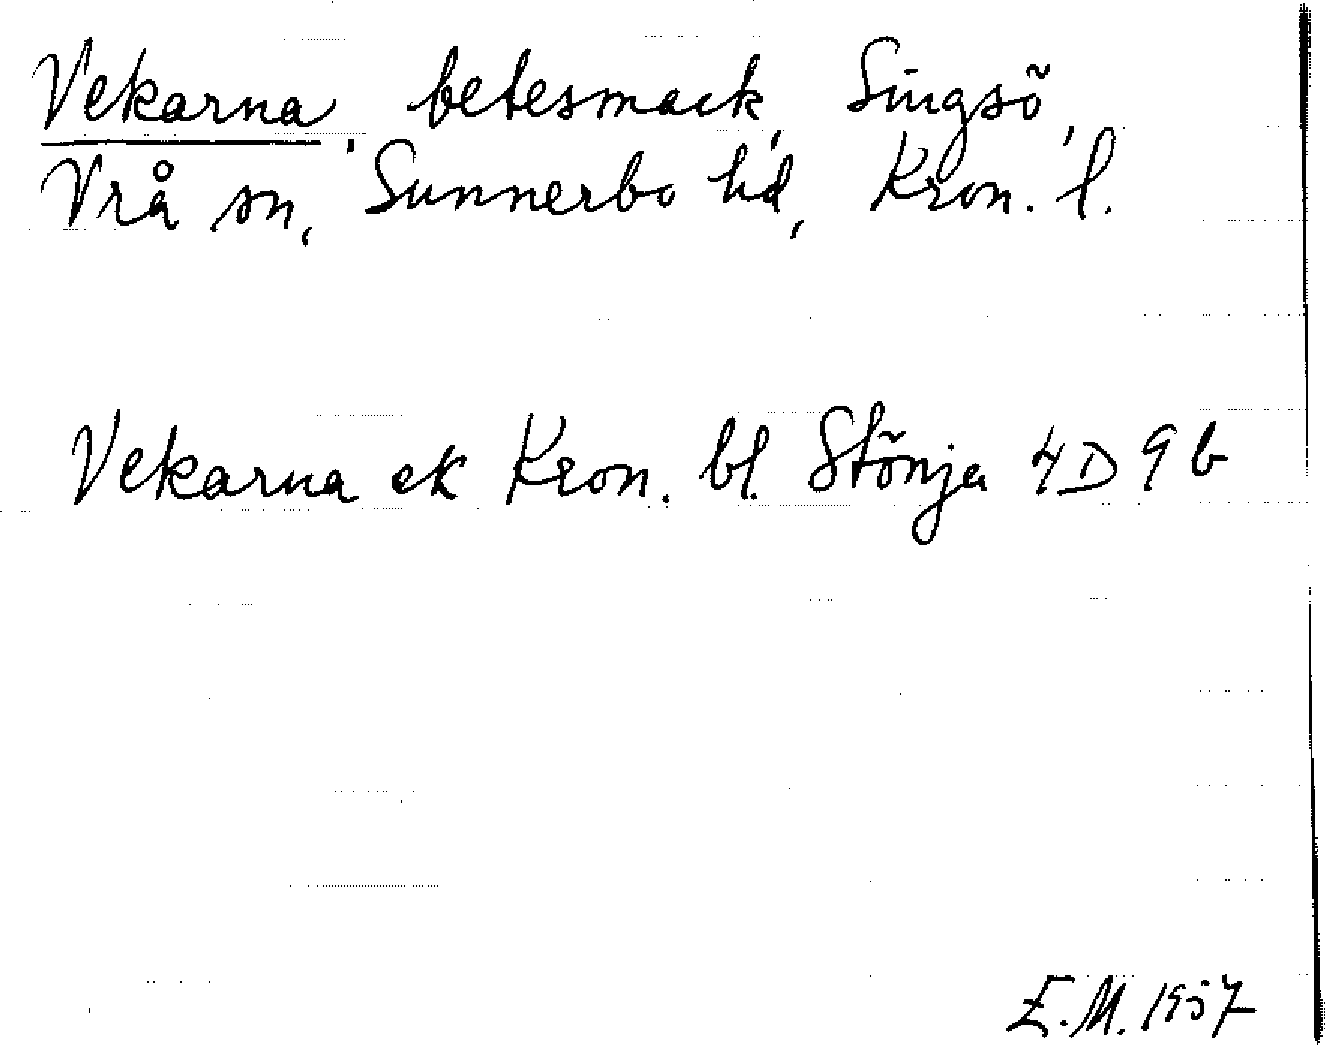 Vekarna, betesmark, Singsö,
Vrå sn, Sunnerbo hd, Kron. l.
Vekarna ek Kron. bl. Stönja 4D 9b
E.M. 1957